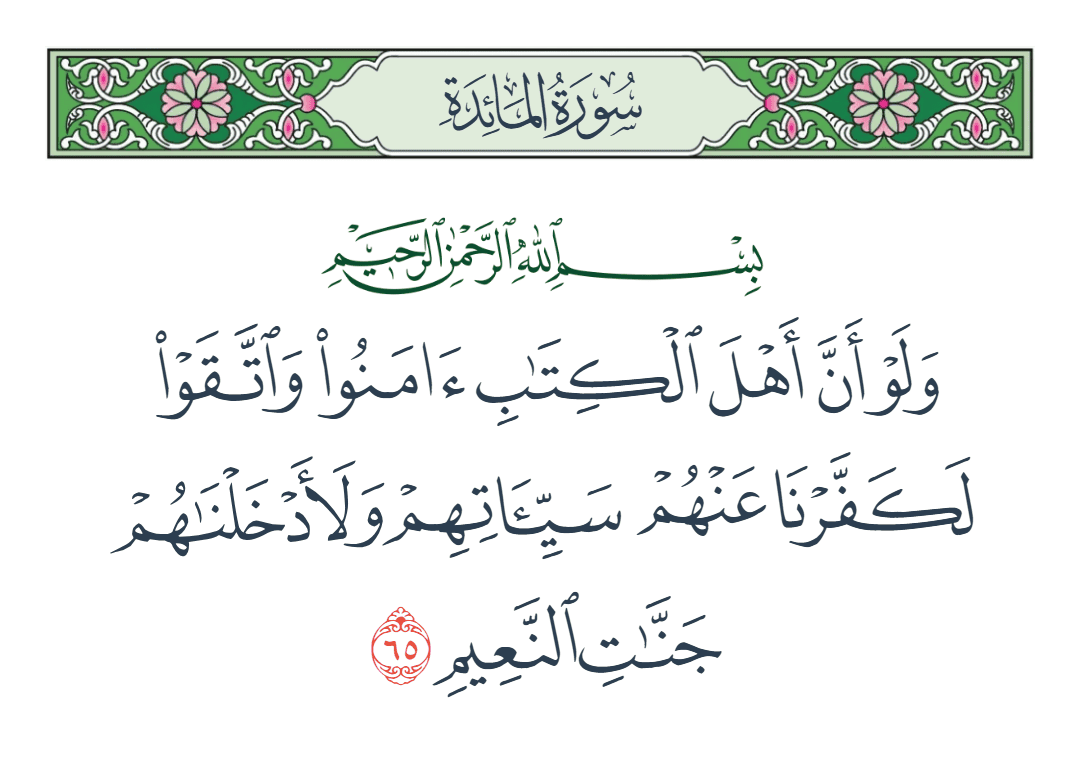 سُورَةُ المَائِدَةِ
بِسْمِ ٱللَّهِ ٱلرَّحْمَٰنِ ٱلرَّحِيمِ
وَلَوْ أَنَّ أَهْلَ ٱلْكِتَٰبِ ءَامَنُوا۟ وَٱتَّقَوْا۟
لَكَفَّرْنَا عَنْهُمْ سَيِّـَٔاتِهِمْ وَلَأَدْخَلْنَٰهُمْ
جَنَّٰتِ ٱلنَّعِيمِ ٦٥